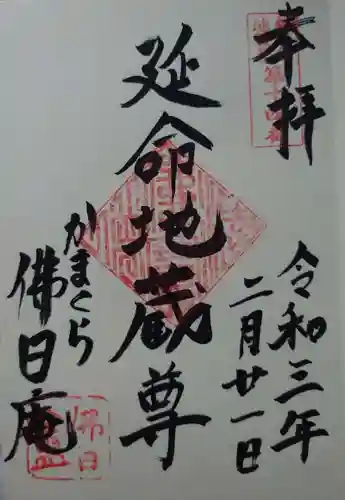 奉拝
令和三年
二月廿一日
延命地蔵尊
かまくら
佛日庵
佛日